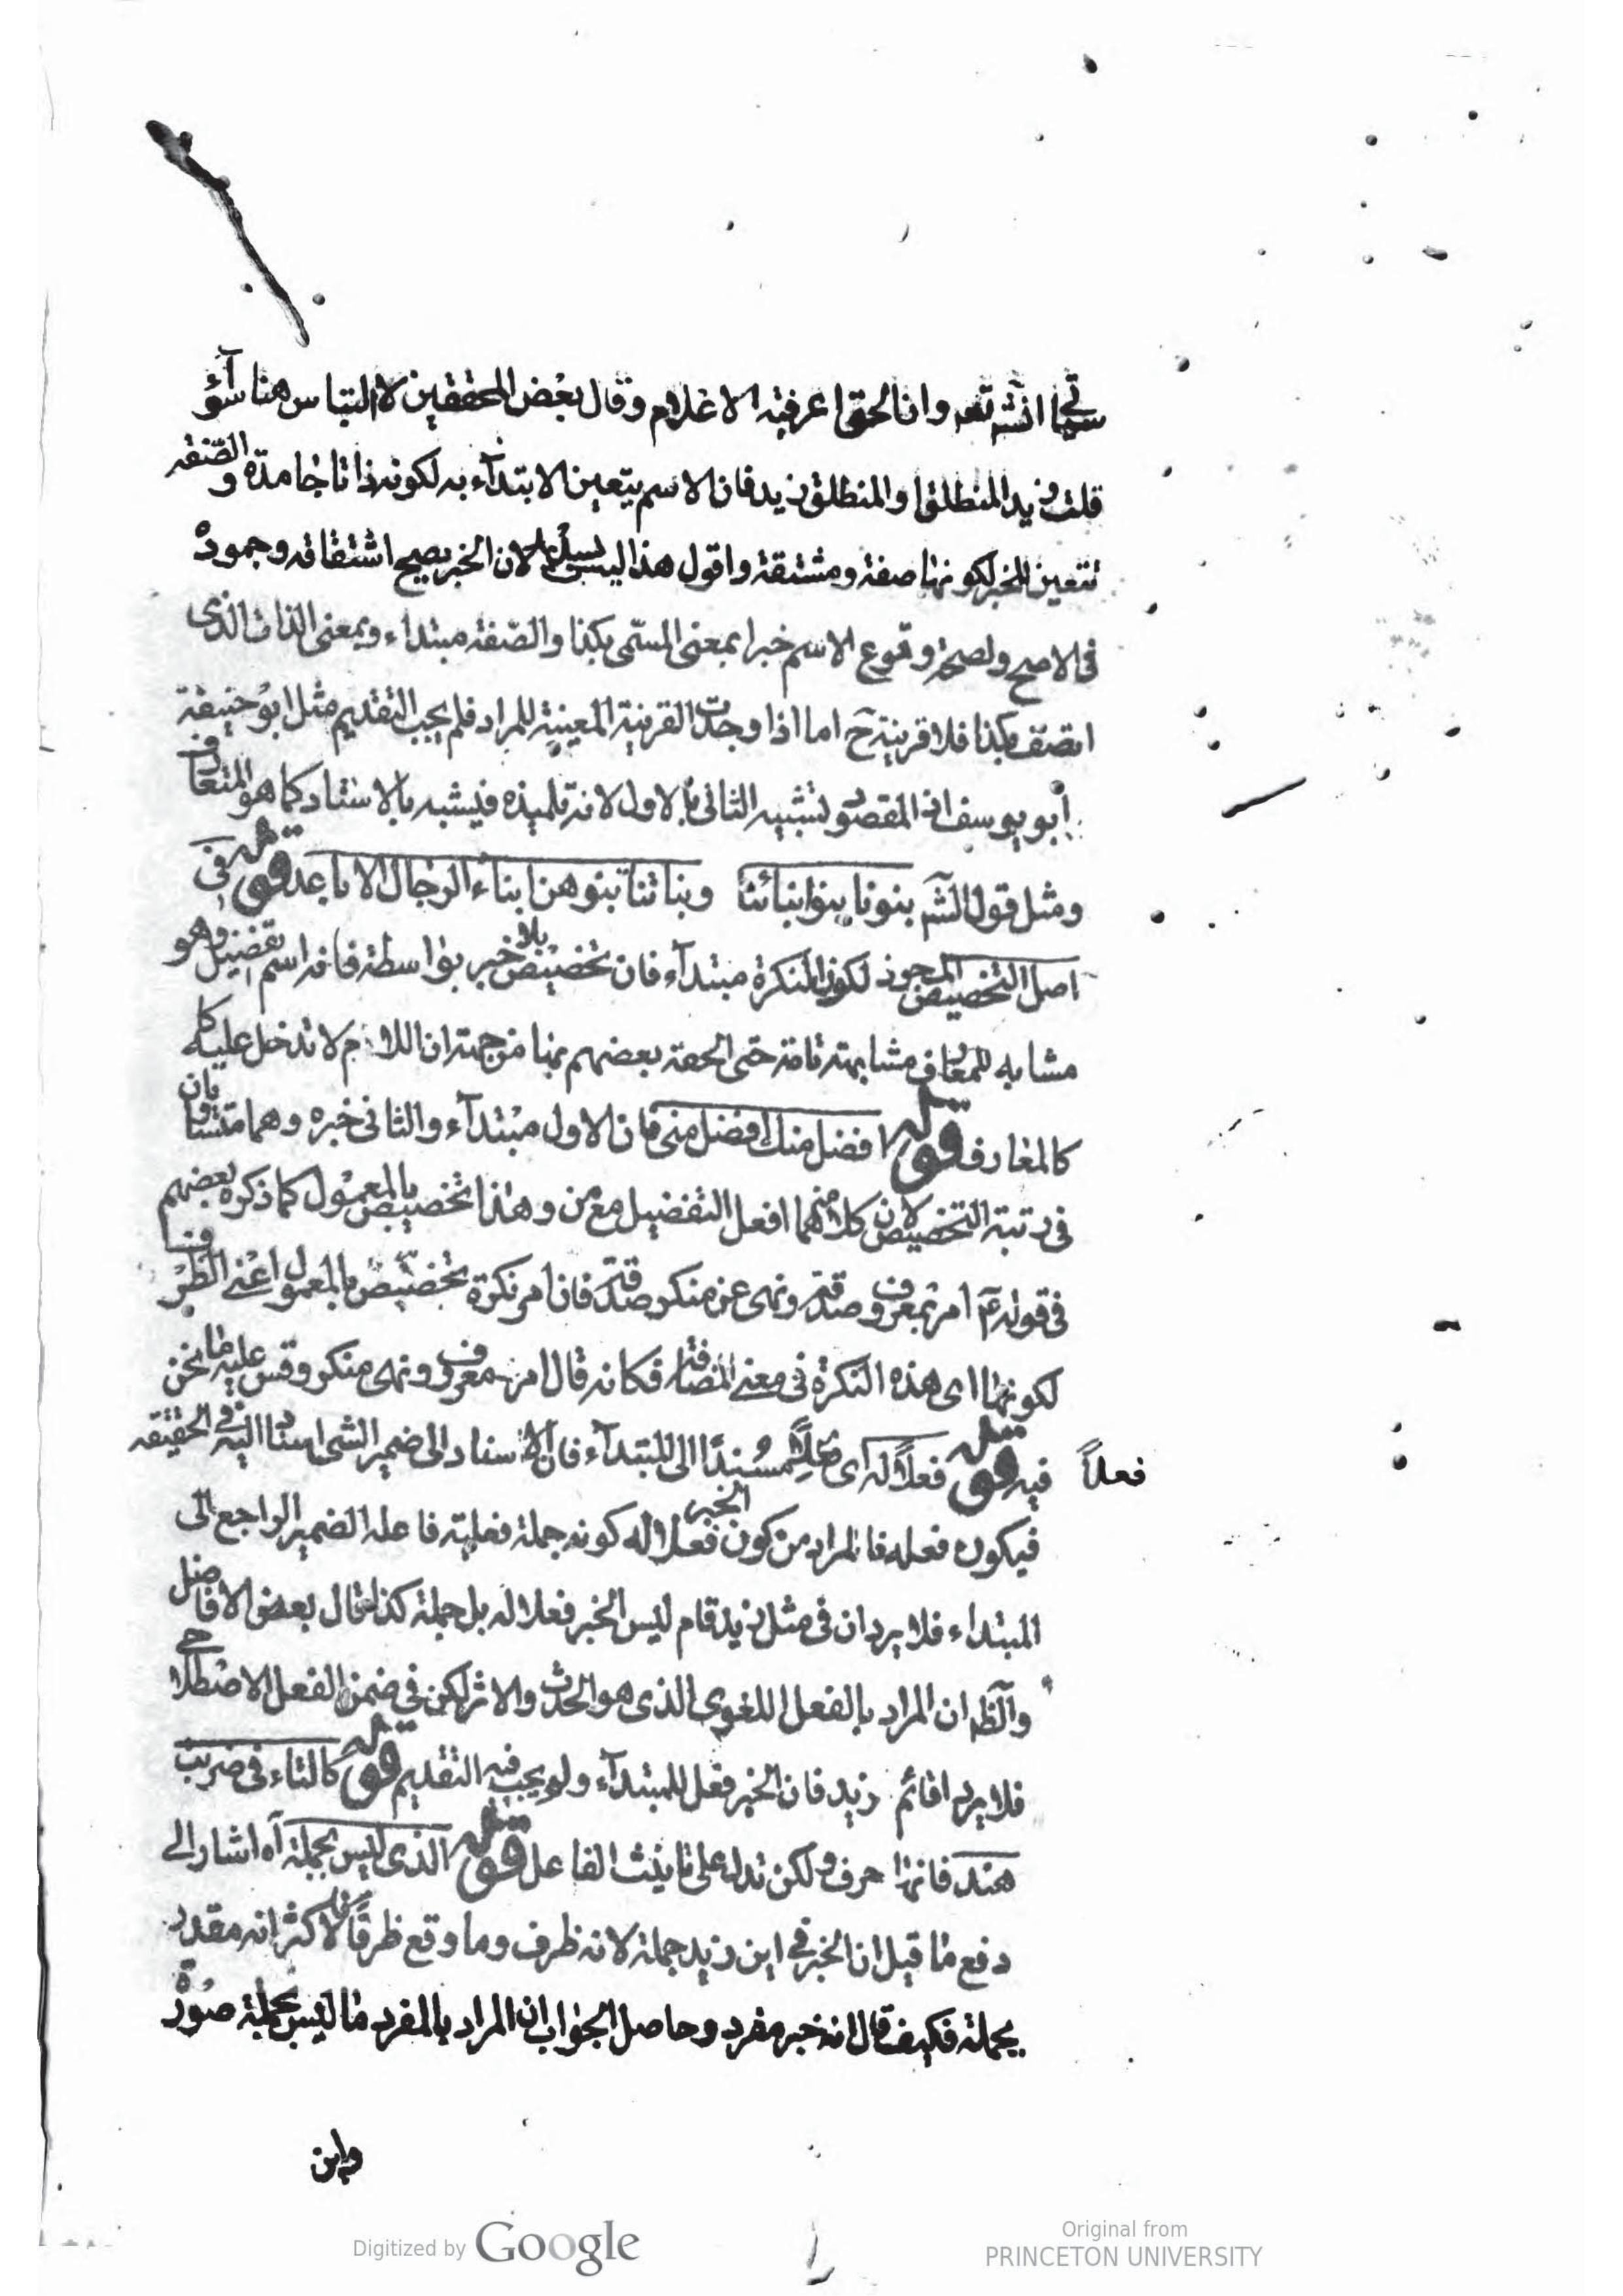 سيجئ انشآ تعه وانا لحق اعرفية الاغلام وقال بعض المحققين لا التباس هنا سوآء
قلت زيد المنطلق او المنطلق زيد فان الاسم يتعين الابتدآء به لكونه ذاتا جامدة والصفة
تتعين للخبر لكونها صفة ومشتقة واقول هذا ليس بشئ لان الخبر يصح اشتقاقه وجموده
فى الاصح ولصحة وقوع الاسم خبرا بمعنى المسمى بكذا والصفة مبتداء وبمعنى الذات الذى
اتصف بكذا فلا قرينة ح اما اذا وجدت القرينة المعينة للمراد فلم يجب التقديم مثل ابو حنيفة
أبو يوسف اذ المقصود تشبيه الثانى بالاول لانه تلميذه فيشبه بالاستاد كما هو المتعارف
ومثل قول الشم بنونا بنوا بنائنا وبناتنا بنوهن ابناء الرجال الاباعد قوله فى
اصل التخصيص المجوز لكون النكرة مبتدآء فان تخصيص خير بلا بواسطة فانه اسم تفضيل وهو
مشابه للمعارف مشابهة تامة حتى الحقه بعضهم بها من جهة ان اللام لا تدخل عليه كما
كالمعارف قوله افضل منك افضل منى فان الاول مبتدآء والثانى خبره وهما متساويان
فى رتبة التخصيص لان كلا منهما افعل التفضيل مع من وهذا تخصيص بالمعمول كما ذكره بعضهم
فى قوله عم امر بمعروف صدقة ونهى عن منكر صدقة فان امر نكرة تخصيص بالمعمول اعنى الظرف
لكونها اى هذه النكرة فى معنى المضافة فكانه قال امر معروف ونهى منكر وقس عليه ما نحن
فيه قوله فعلاً له اى مسنداً الى المبتدآء فان الاسناد الى ضمير الشئ اسناد اليه فى الحقيقه
فعلاً
فيكون فعله فالمراد من كون الخبر فعلا له كونه جملة فعلية فاعله الضمير الراجع الى
المبتداء فلا يرد ان فى مثل زيد قام ليس الخبر فعلا له بل جملة كذا قال بعض الافاضل
والظ ان المراد بالفعل اللغوى الذى هو الحدث والاثر لكن فى ضمن الفعل الاصطلاحى
فلا يرد اقائم زيد فان الخبر فعل للمبتدآء ولم يجب فيه التقديم قوله كالتاء فى ضربت
هند فانها حرف ولكن تدل على تانيث الفاعل قوله الذى ليس بجملة آه اشار الى
دفع ما قيل ان الخبر فى اين زيد جملة لانه ظرف وما وقع ظرفاً فالاكثر انه مقدر
بجملة فكيف قال انه خبر مفرد وحاصل الجواب ان المراد بالمفرد ما ليس بجملة صورة
واين
Digitized by Google
Original from
PRINCETON UNIVERSITY